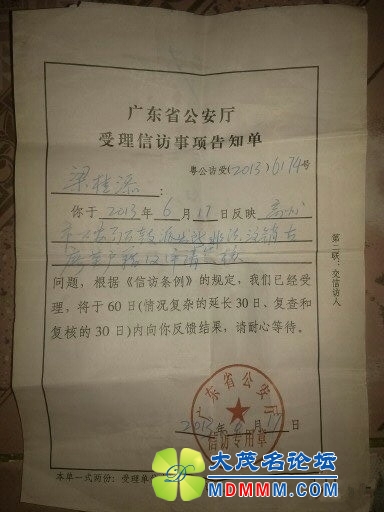 广东省公安厅
受理信访事项告知单
粤公访受(2013)6174号
梁桂添:
你于2013年6月17日反映高州
市公安局石鼓派出所非法注销
问题，根据《信访条例》的规定，我们已经受
理，将于60日(情况复杂的延长30日、复查和
复核的30日)内向你反馈结果，请耐心等待。
广东省公安厅
信访专用章
2013年 月17日
第二联：交信访人
本单一式两份：受理单
大茂名论坛
MDMMM.COM